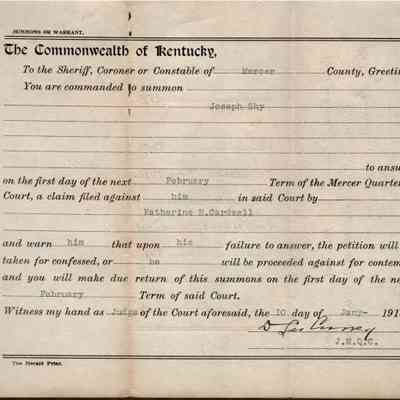 SUMMONS OR WARRANT.
The Commonwealth of Kentucky,
To the Sheriff, Coroner or Constable of Mercer County, Greetin
You are commanded to summon
Joseph Shy
to answ
on the first day of the next February Term of the Mercer Quarter
Court, a claim filed against him in said Court by
Katharine B.Cardwell
and warn him that upon his failure to answer, the petition will
taken for confessed, or he will be proceeded against for contem
and you will make due return of this summons on the first day of the ne
February Term of said Court.
Witness my hand as Judge of the Court aforesaid, the 10 day of Jany- 191
J.M.Q.C.
The Herald Print.